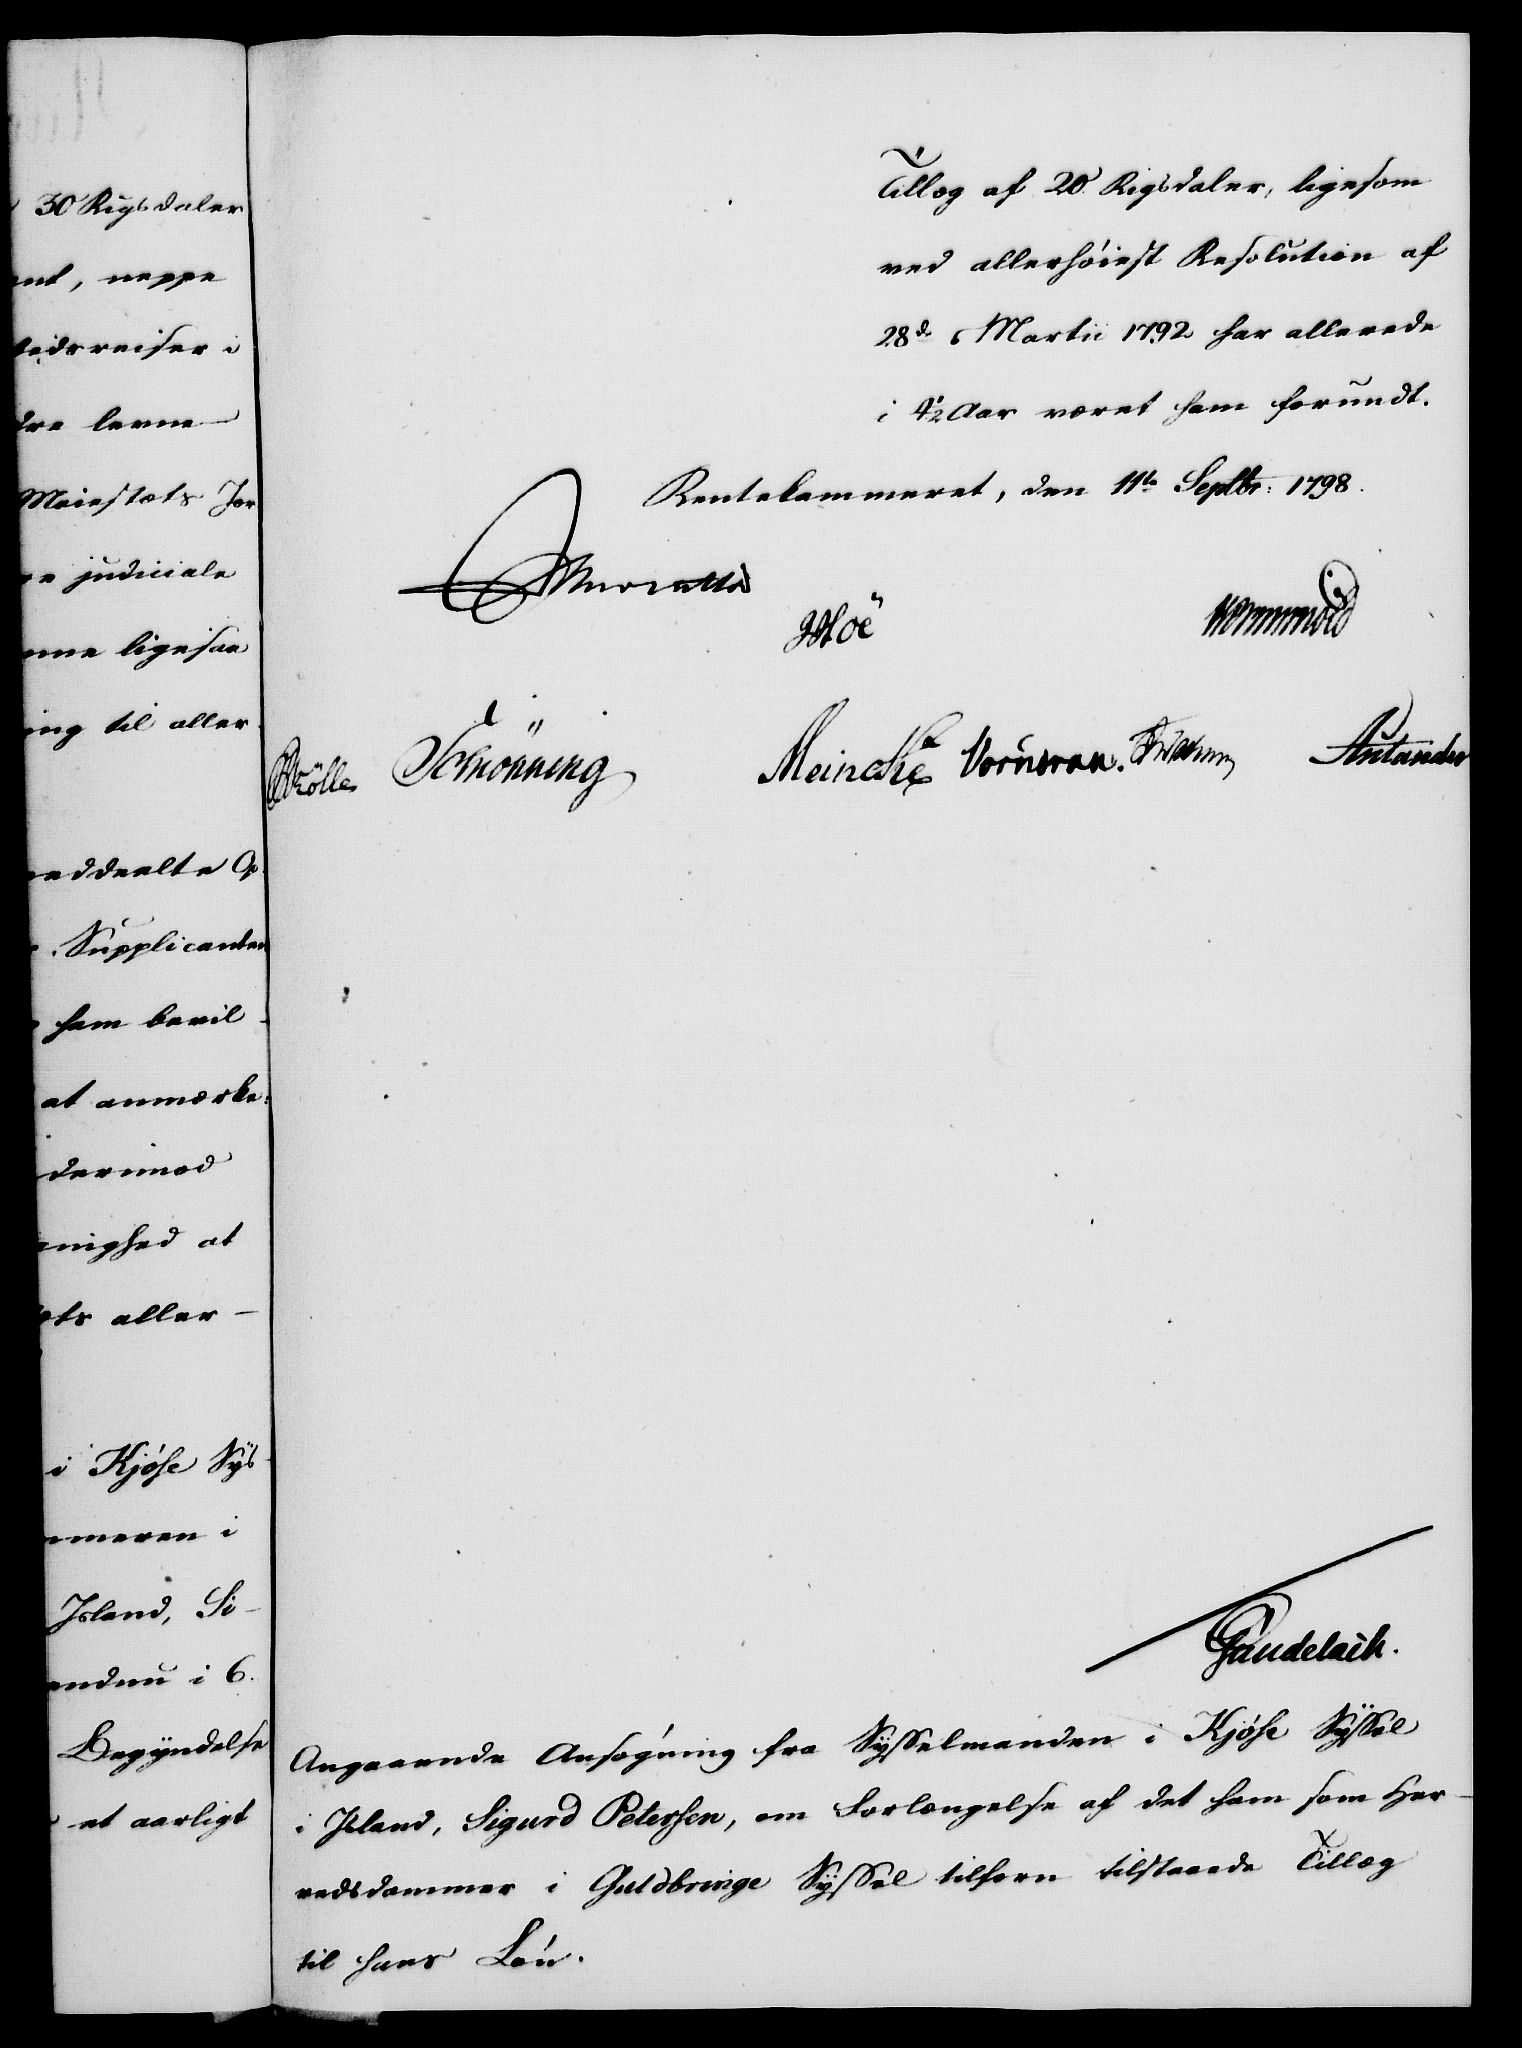 30 Rigsdaler
nt, neppe
tidsreiser i
dre levne
Maiestæts Jor
e judiciale
nne ligesaa
ing til aller-
eddeelte Op
Supplicanten
ham bevil-
at anmærke:
derimod
enighed at
ts aller-
i Kjóse Sys-
mmeren i
Island, Si-
endnu i 6.
Begyndelse
et aarligt
Tillæg af 20 Rigsdaler, ligesom
ved allerhóiest Resolution af
28d Martii 1792 har allerede
i 4½ Aar været ham forundt.
Rentekammeret, den 11te Septbr: 1798.
Schönning
Meincke
Angaaende Ansógning fra Sysselmanden i Kjóse Syssel
i Island, Sigurd Petersen, om Forlængelse af det ham som Her-
redsdommer i Guldbringe Syssel tilforn tilstaaede Tillæg
til hans Lón.